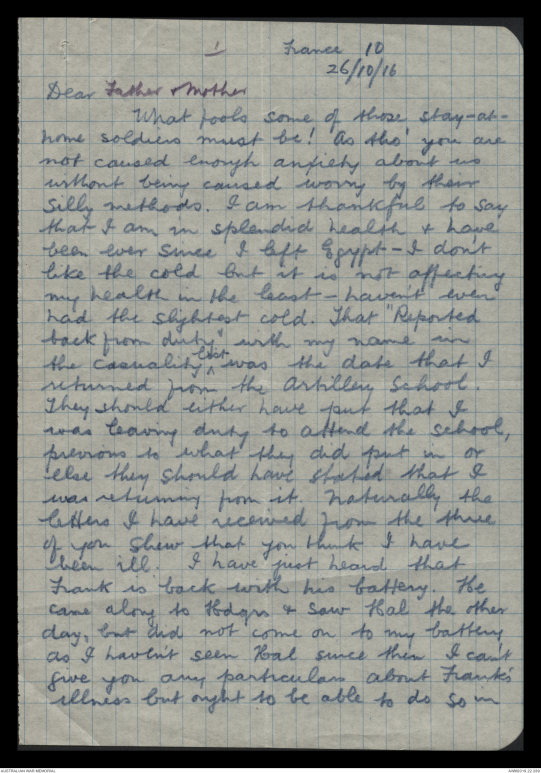 1
France 10
26/10/16
Dear Father & Mother
What fools some of those stay-at-
home soldiers must be! As tho' you are
not caused enough anxiety about us
without being caused worry by their
silly methods. I am thankful to say
that I am in splendid health & have
been ever since I left Egypt - I don't
like the cold but it is not affecting
my health in the least - haven't even
had the slightest cold. That "Reported
back from duty" with my name in
the casuality list was the date that I
returned from the Artillery School.
They should either have put that I
was leaving duty to attend the school,
previous to what they did put in or
else they should have stated that I
was returning from it. Naturally the
letters I have received from the three
of you shew that you think I have
been ill. I have just heard that
Frank is back with his battery. He
came along to Hdqrs & saw Hal the other
day, but did not come on to my battery
as I haven't seen Hal since then I can't
give you any particulars about Frank's
illness but ought to be able to do so in
AUSTRALIAN WAR MEMORIAL